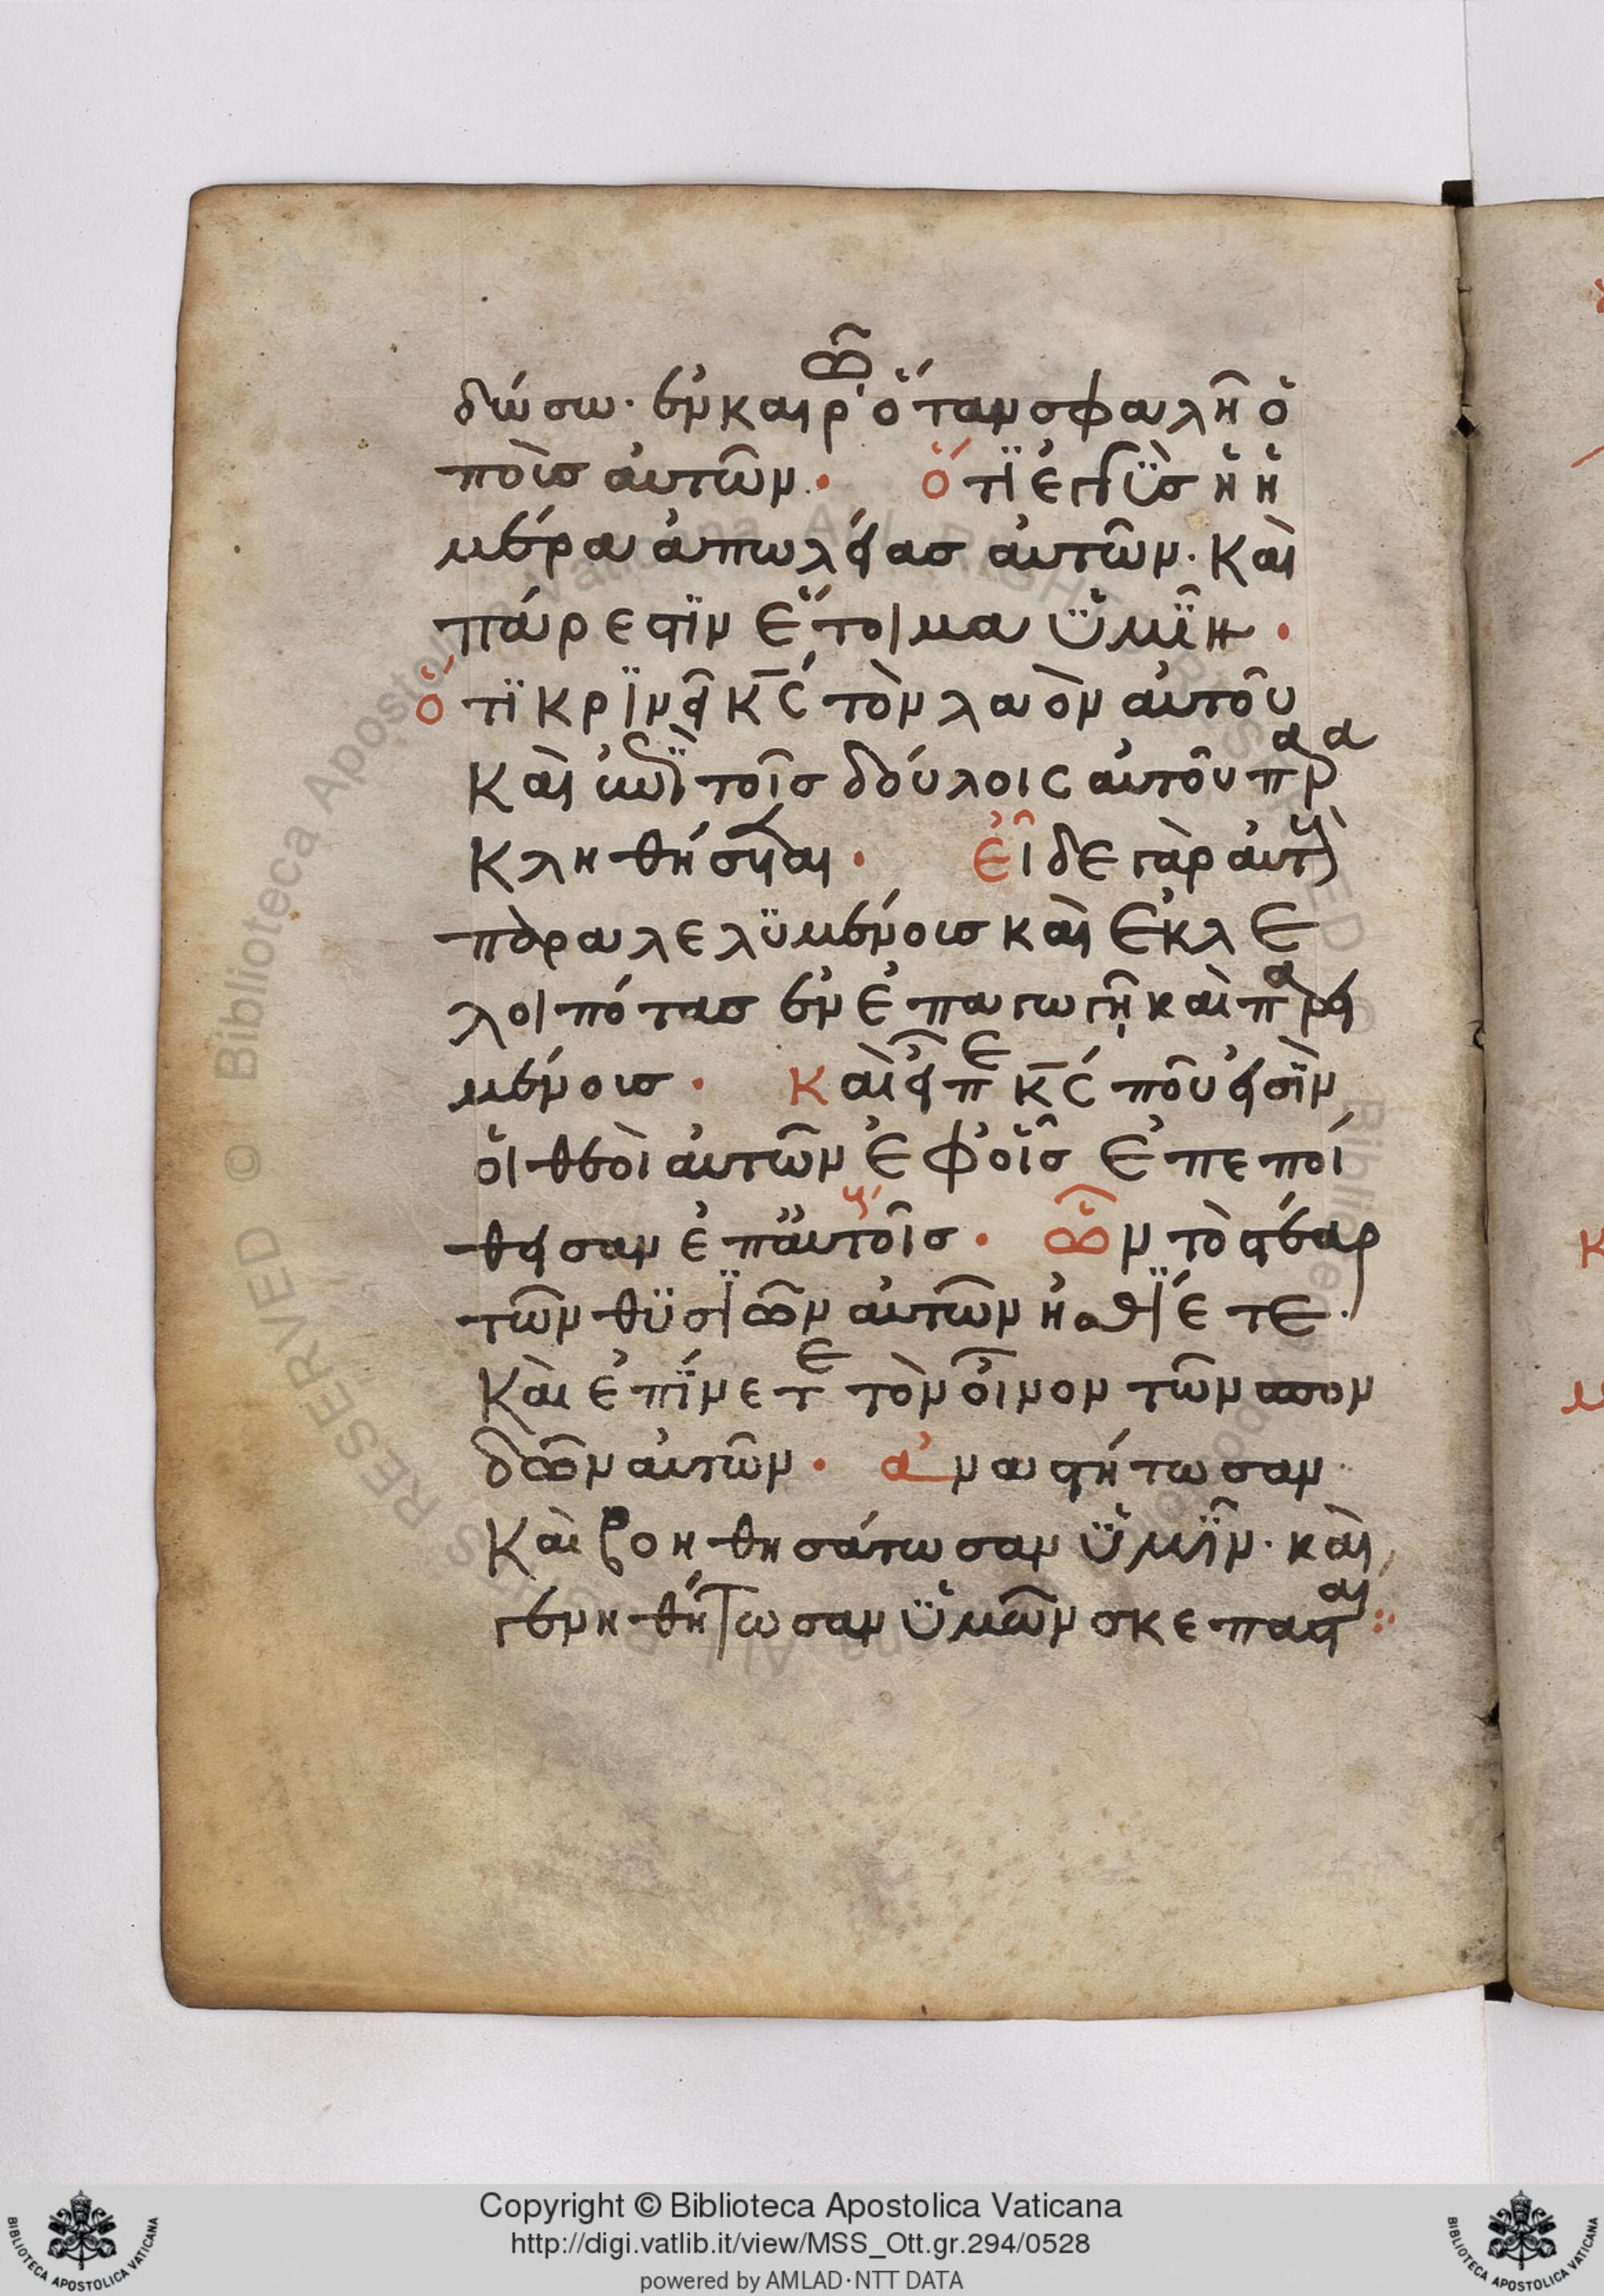 δώσω· ἐν καιρῶ ὅταν σφαλῆ ὁ
ποῦς αὐτῶν· ὅτι ἐγγὺς ἡ ἡ
μέρα ἀπωλείας αὐτῶν· καὶ
πάρεστιν ἕτοιμα ὑμῖν·
ὅτι κρινεῖ κς τὸν λαὸν αὐτοῦ
καὶ ἐπὶ τοῖς δούλοις αὐτοῦ παρα
κληθήσεται· εἶδε γὰρ αὐτοὺς
παραλελυμένους καὶ ἐκλε
λοιπότας ἐν ἐπαγωγῆ καὶ παρει
μένους· καὶ εἶπε κς ποῦ εἰσὶν
οἱ θεοὶ αὐτῶν ἐφ οἷς ἐπεποί
θεισαν ἐπ αὐτοῖς· ὧν τὸ στέαρ
τῶν θυσιῶν αὐτῶν ἠσθίετε·
καὶ ἐπίνετε τὸν οἶνον τῶν σπον
δῶν αὐτῶν· ἀναστήτωσαν
καὶ βοηθησάτωσαν ὑμῖν· καὶ
γενηθήτωσαν ὑμῶν σκεπασταί
Copyright © Biblioteca Apostolica Vaticana
http://digi.vatlib.it/view/MSS_Ott.gr.294/0528
powered by AMLAD·NTT DATA
BIBLIOTECA APOSTOLICA VATICANA
BIBLIOTECA APOSTOLICA VATICANA